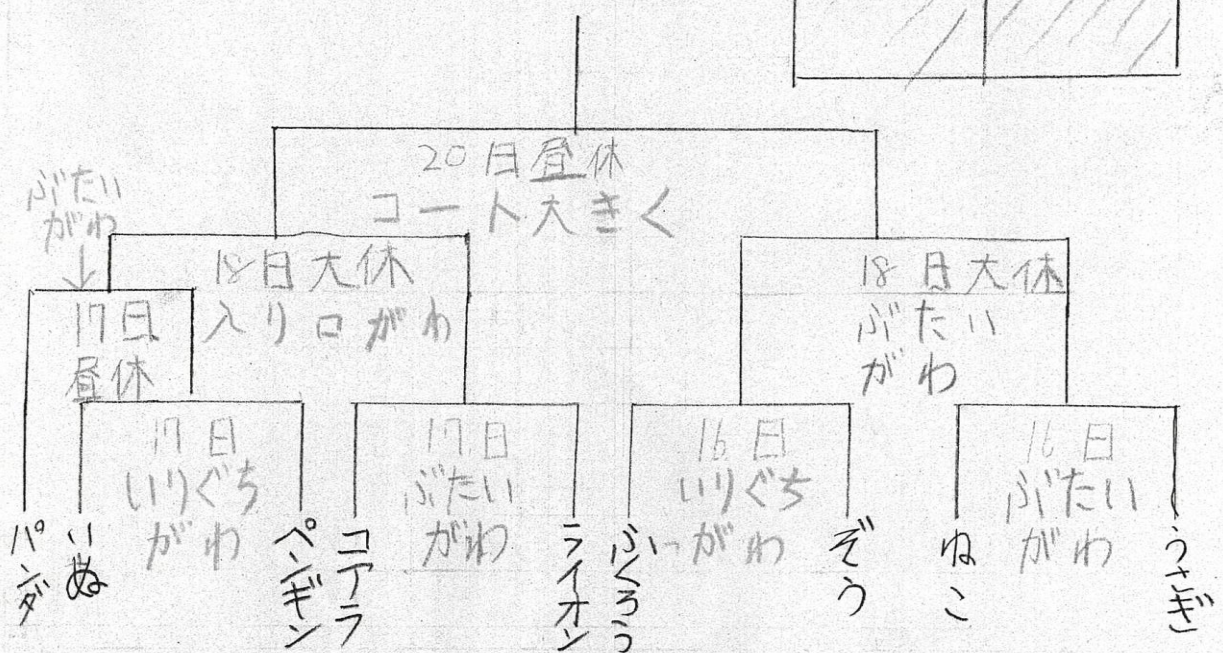 20日昼休
コート大きく
ぶたい
がわ
↓
18日大休
入り口がわ
18日大休
ぶたい
がわ
17日
昼休
17日
いりぐち
がわ
17日
ぶたい
がわ
16日
いりぐち
がわ
16日
ぶたい
がわ
パンダ
いぬ
ペンギン
コアラ
ライオン
ふくろう
ぞう
ねこ
うさぎ